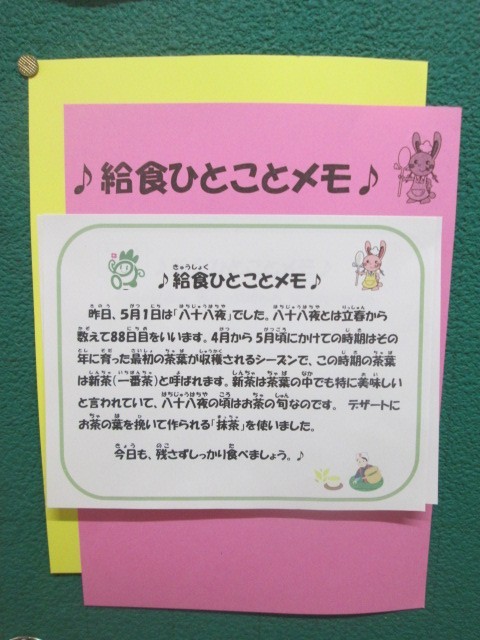 ♪給食ひとことメモ♪
きゅうしょく
♪給食ひとことメモ♪
昨日、5月1日は「八十八夜」でした。八十八夜とは立春から
数えて88日目をいいます。4月から5月頃にかけての時期はその
年に育った最初の茶葉が収穫されるシーズンで、この時期の茶葉
は新茶(一番茶)と呼ばれます。新茶は茶葉の中でも特に美味しい
と言われていて、八十八夜の頃はお茶の旬なのです。 デザートに
お茶の葉を挽いて作られる「抹茶」を使いました。
今日も、残さずしっかり食べましょう。♪